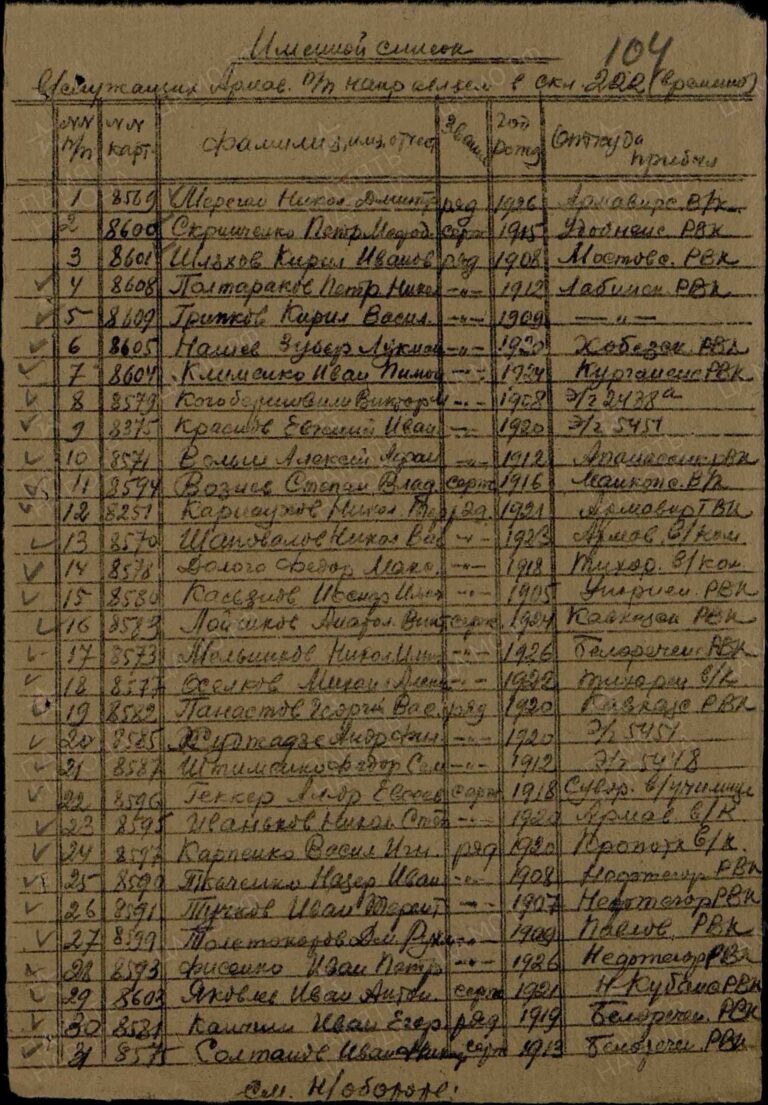 Именной список
104
в/служащих Армав. п/п направляем в скл. 222 (временно)
NN п/п NN карт. Фамилия, имя, отчест Звание Год рожд Откуда прибыл
1 8569 Никол Дмитр ряд 1926 Армавирс. В/к
2 8600 Скрипченко Петр серж 1915 Удобненс РВК
3 8601 Шляхов Кирил Иванов ряд 1908 Мостовс. РВК
4 8608 Полтараков Петр Никол -"- 1912 Лабинск РВК
5 8609 Грипков Кирил Васил. -"- 1909 -"-
6 8605 Нашев Зубер Лукман -"- 1920 Хабезск РВК
7 8604 Клименко Иван Пимон -"- 1924 Курганенс РВК
8 8579 Виктор -"- 1908 Э/г 2438а
9 8375 Красиков Евгений Иван -"- 1920 Э/г 5451
10 8571 Алексей -"- 1912 РВК
11 8594 Возиев Степан Влад серж 1916 Майкопс. В/к
12 8251 Карнаухов Никол. ряд 1921 Армавир ГВК
13 8570 Шаповалов Никол Вас -"- 1923 Армав. в/ком
14 8578 Долого Федор Макс. -"- 1918 Тихор. в/ком
15 8580 -"- 1905 РВК
16 8583 Лойшков Анатол. Викт серж 1924 Кавказск РВК
17 8573 Мельников Никол -"- 1926 Белоречен РВК
18 8577 Оселков Михаи -"- 1922 Тихорец в/к
19 8582 Панастов Георги Вас ряд 1920 Кавказс РВК
20 8585 -"- 1920 Э/г 5451
21 8587 Штименко Федор Сем -"- 1912 Э/г 5418
22 8596 Геккер серж 1918 Сувор. в/училище
23 8595 Иваньков Никол Степ -"- 1920 Армав в/к
24 8597 Карпенко Васил Игн. ряд 1920 Кропотк в/к.
25 8590 Ткаченко Назар Иван -"- 1908 Нефтегор РВК
26 8591 Тучков Иван -"- 1907 Нефтегор РВК
27 8599 -"- 1909 Павлов. РВК
28 8593 Фисенко Иван Петр -"- 1926 Нефтегор РВК
29 8602 Яковлев Иван Антон. серж 1921 Н-Кубанс РВК
30 8581 Капшин Иван Егор ряд 1919 Белоречен РВК
31 8575 Солтанов Иван серж 1913 Белоречен РВК
см. н/обороте: